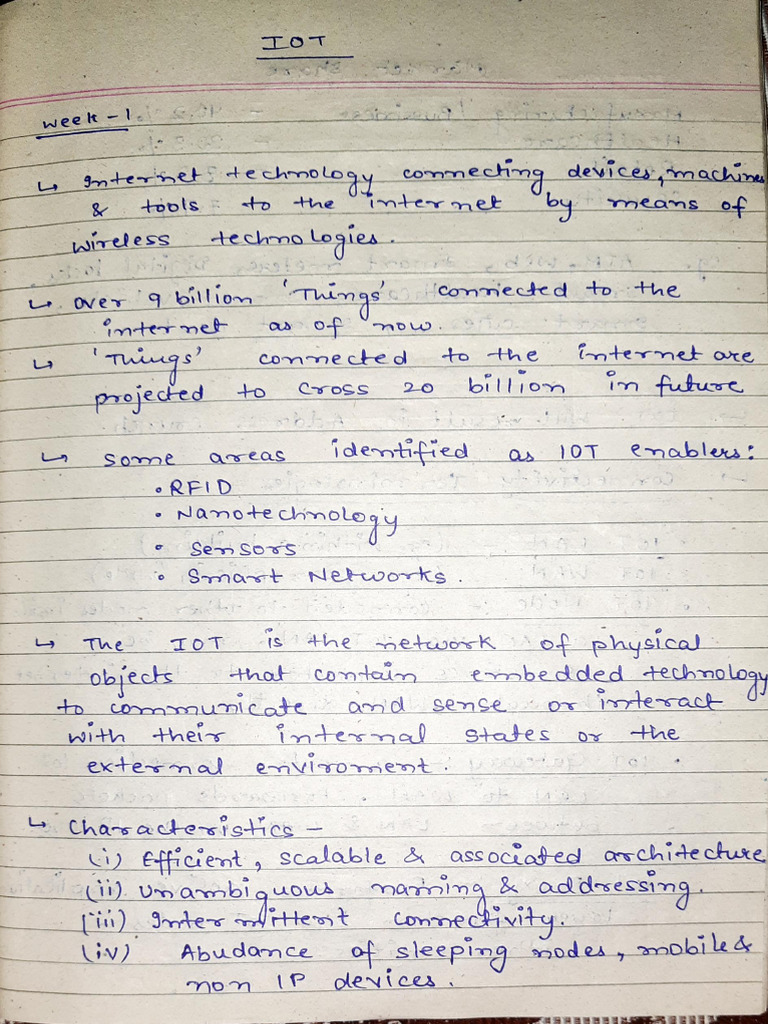 IOT
Week-1
↳ Internet technology connecting devices, machines
& tools to the internet by means of
wireless technologies.
↳ over 9 billion 'Things' connected to the
internet as of now.
↳ 'Things' connected to the internet are
projected to cross 20 billion in future
↳ some areas identified as IOT enablers:
• RFID
• Nanotechnology
• sensors
• Smart Networks.
↳ The IOT is the network of physical
objects that contain embedded technology
to communicate and sense or interact
with their internal states or the
external enviroment.
↳ Characteristics -
(i) Efficient, scalable & associated architecture
(ii) Unambiguous naming & addressing.
(iii) Intermittent connectivity.
(iv) Abudance of sleeping nodes, mobile &
non IP devices.